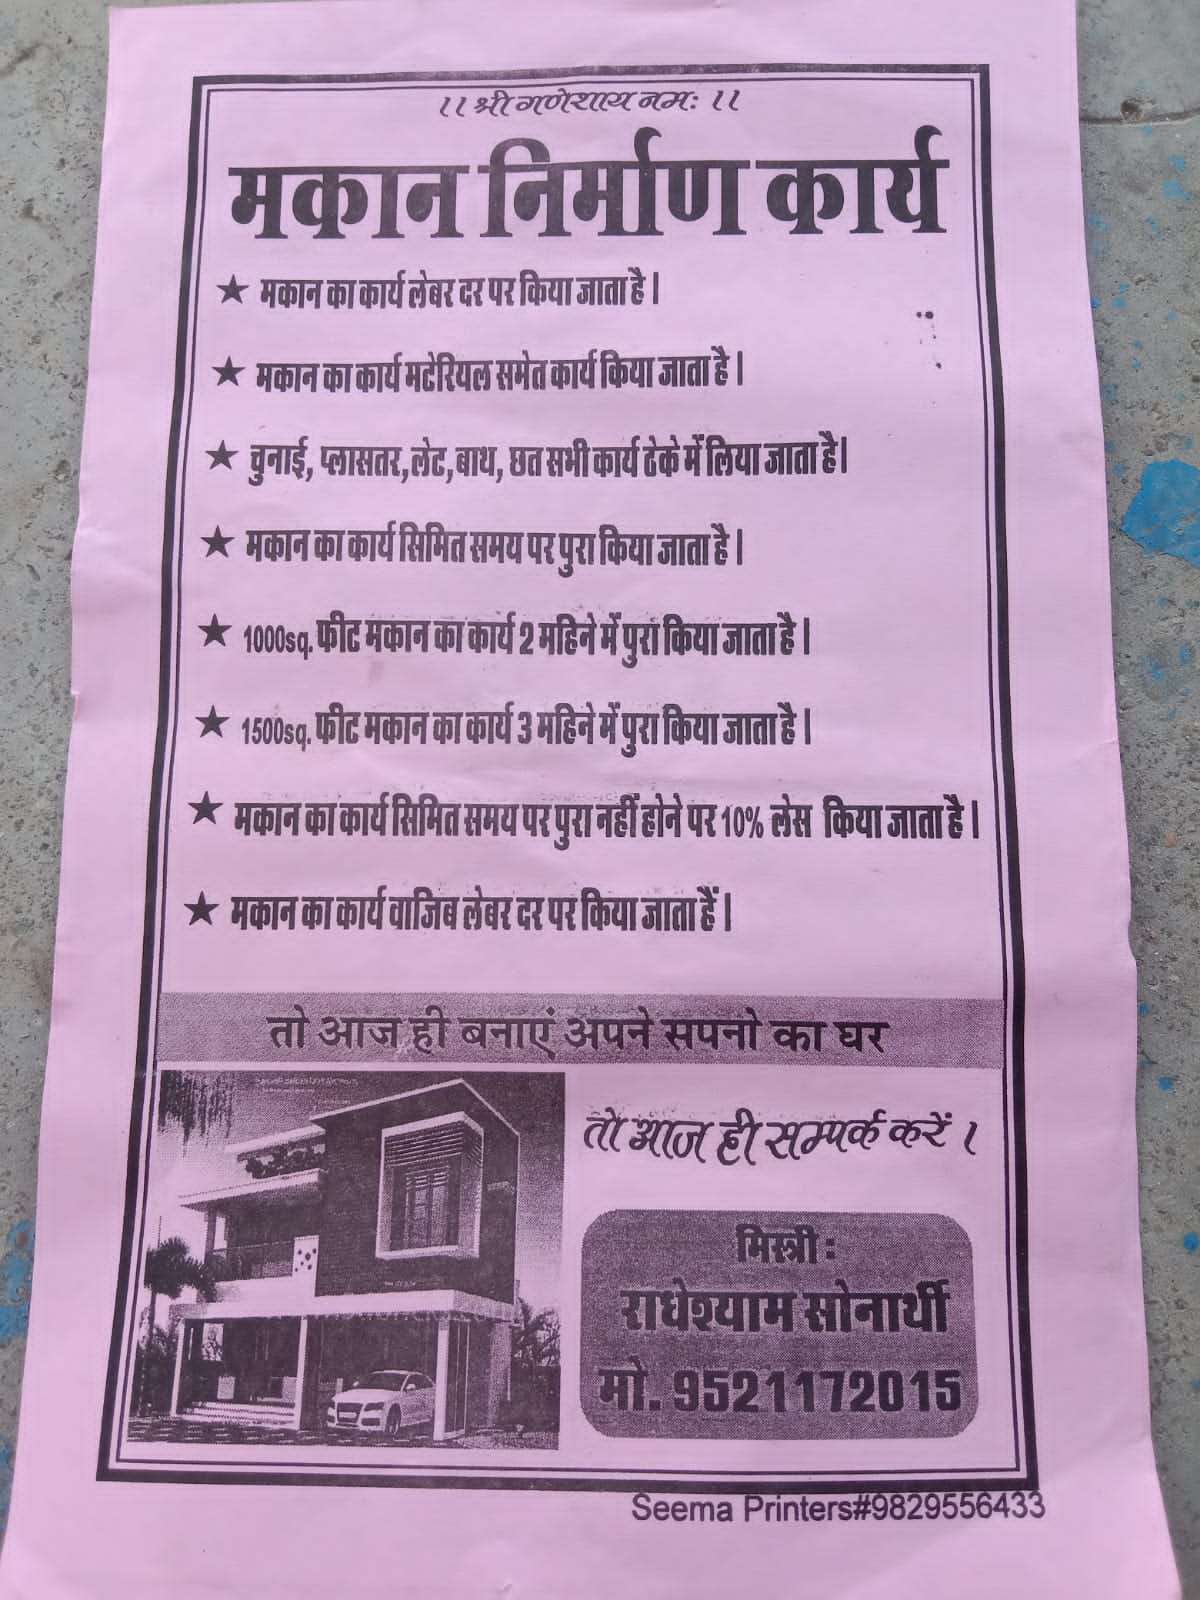 ।। श्री गणेशाय नमः ।।
मकान निर्माण कार्य
★ मकान का कार्य लेबर दर पर किया जाता है।
★ मकान का कार्य मटेरियल समेत कार्य किया जाता है।
★ चुनाई, प्लासतर, लेट, बाथ, छत सभी कार्य ठेके में लिया जाता है।
★ मकान का कार्य सिमित समय पर पुरा किया जाता है।
★ 1000sq. फीट मकान का कार्य 2 महिने में पुरा किया जाता है।
★ 1500sq. फीट मकान का कार्य 3 महिने में पुरा किया जाता है।
★ मकान का कार्य सिमित समय पर पुरा नहीं होने पर 10% लेस किया जाता है।
★ मकान का कार्य वाजिब लेबर दर पर किया जाता हैं।
तो आज ही बनाएं अपने सपनो का घर
तो आज ही सम्पर्क करें।
मिस्त्री :
राधेश्याम सोनार्थी
मो. 9521172015
Seema Printers#9829556433